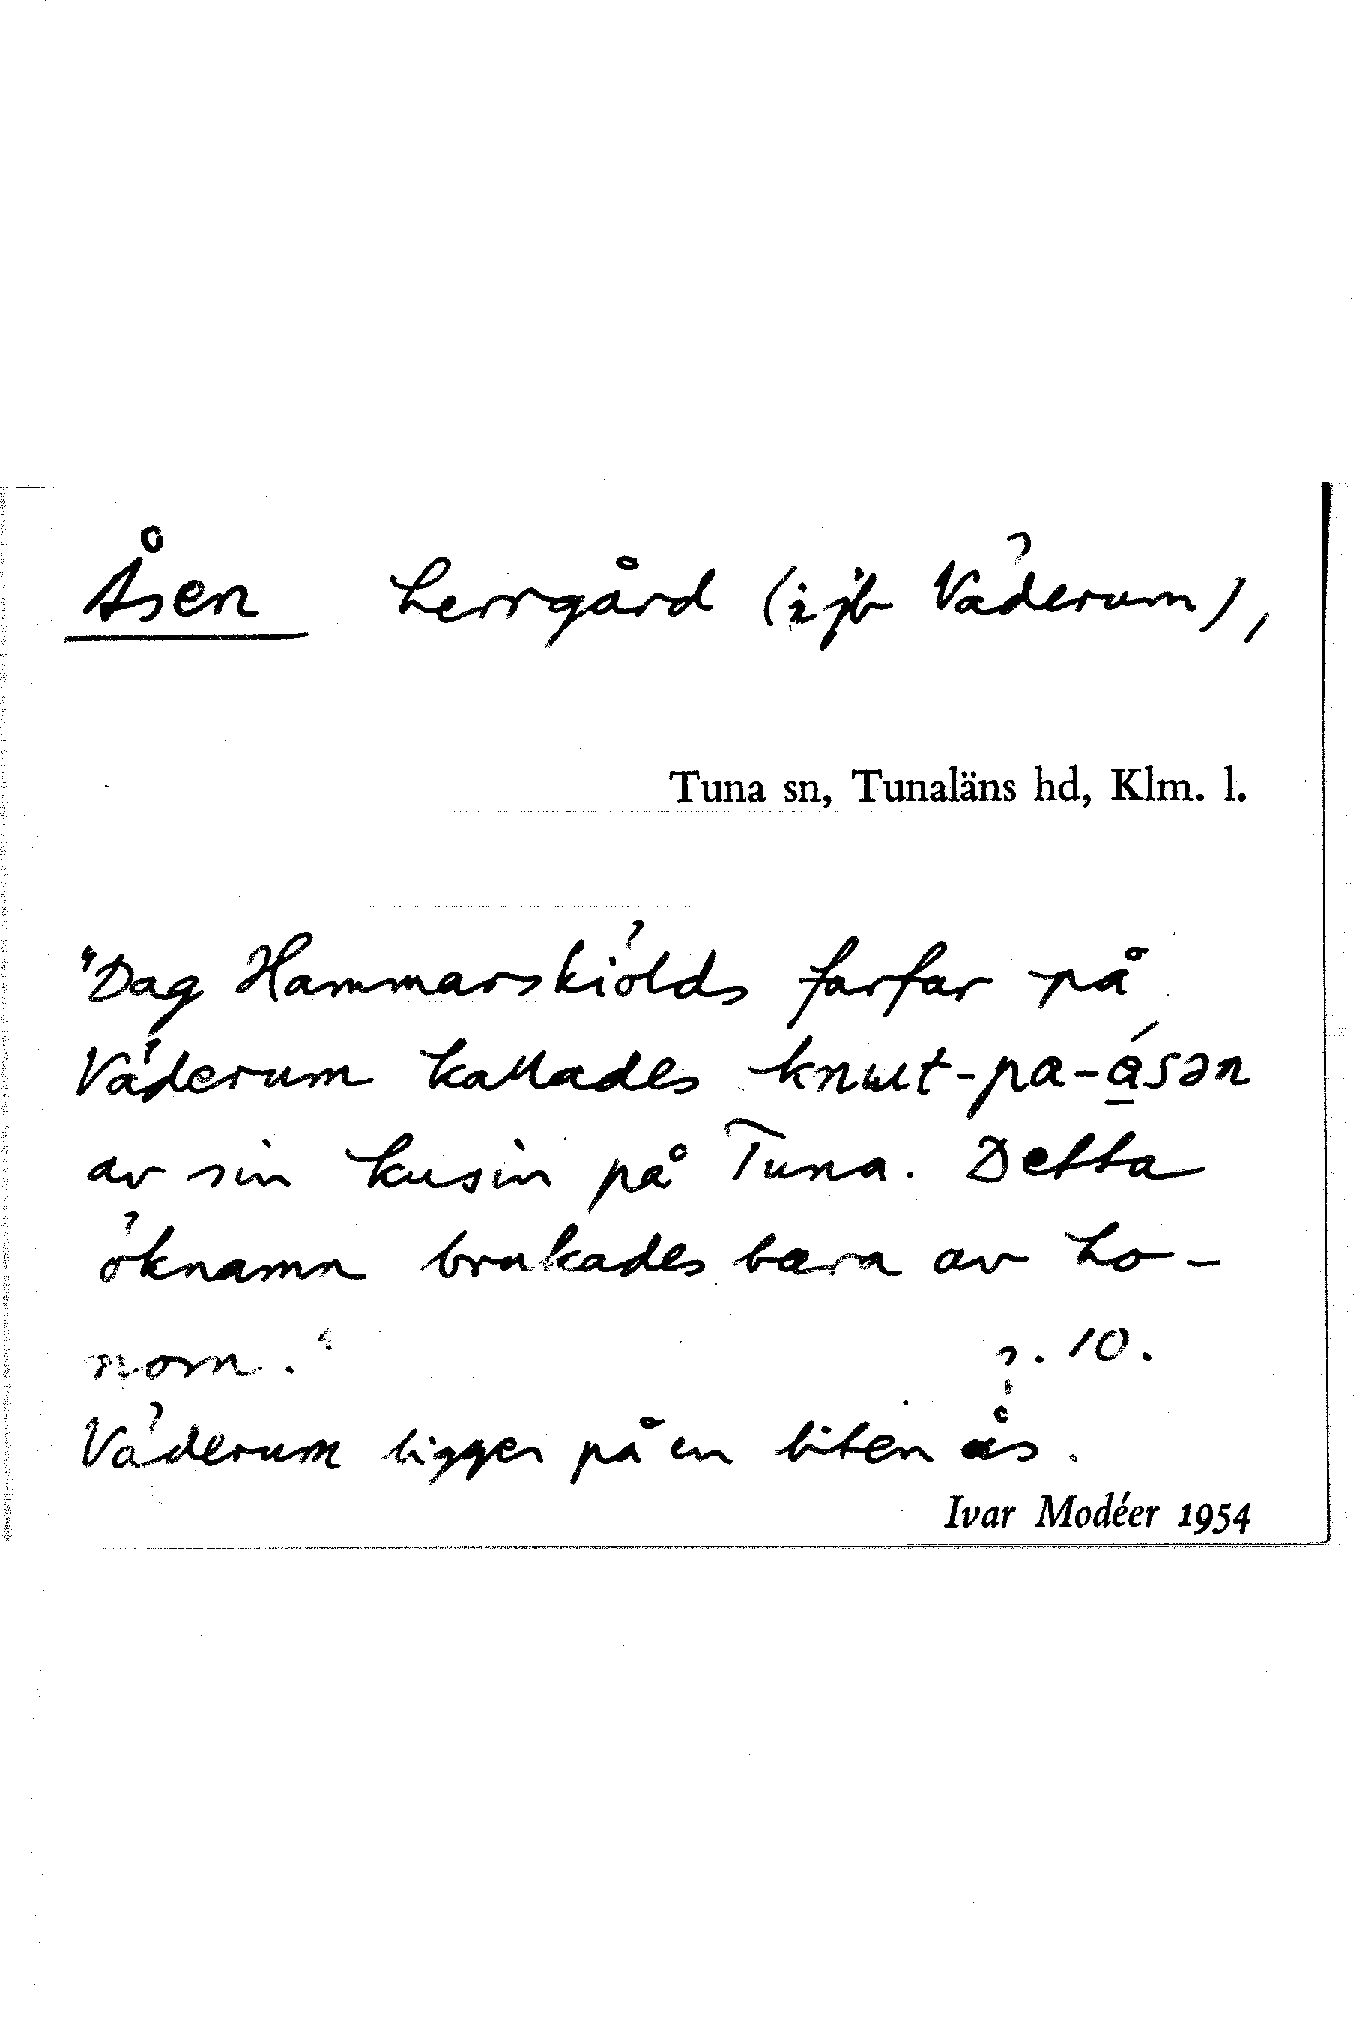 Åsen herrgård (i jb Väderum),
Tuna sn, Tunaläns hd, Klm. l.
"Dag Hammarskiölds farfar på
Väderum kallades knɯt-pa-ásən
av sin kusin på Tuna. Detta
öknamn brukades bara av ho-
nom." 10.
Väderum ligger på en liten ås.
Ivar Modéer 1954